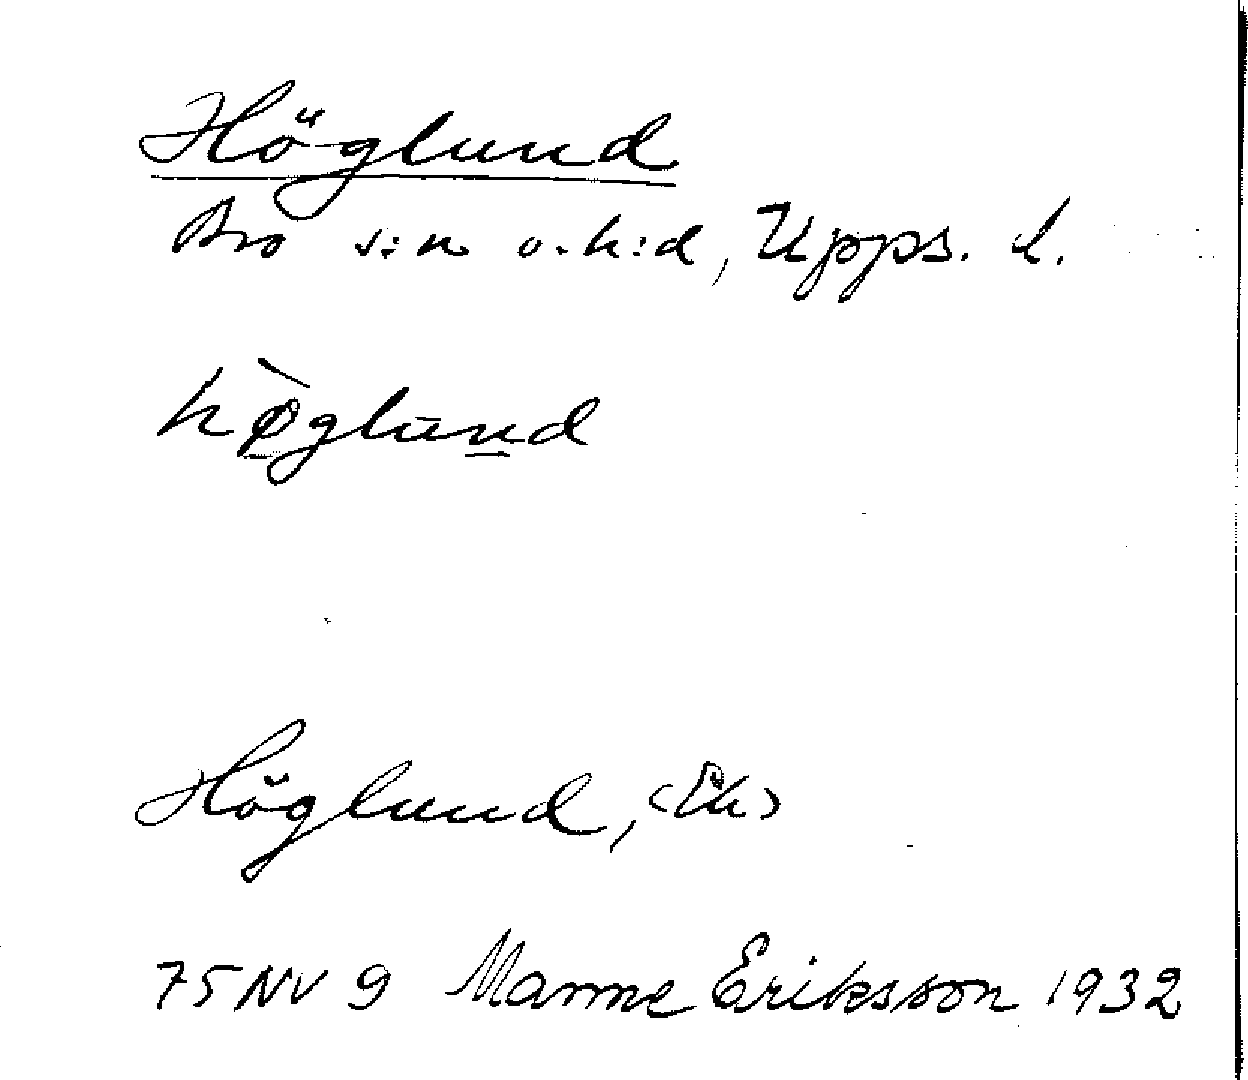 Höglund
Bro s:n o. h:d, Upps. l.
hø̀glūnd
Höglund, (Ek)
75 NV 9 Manne Eriksson 1932